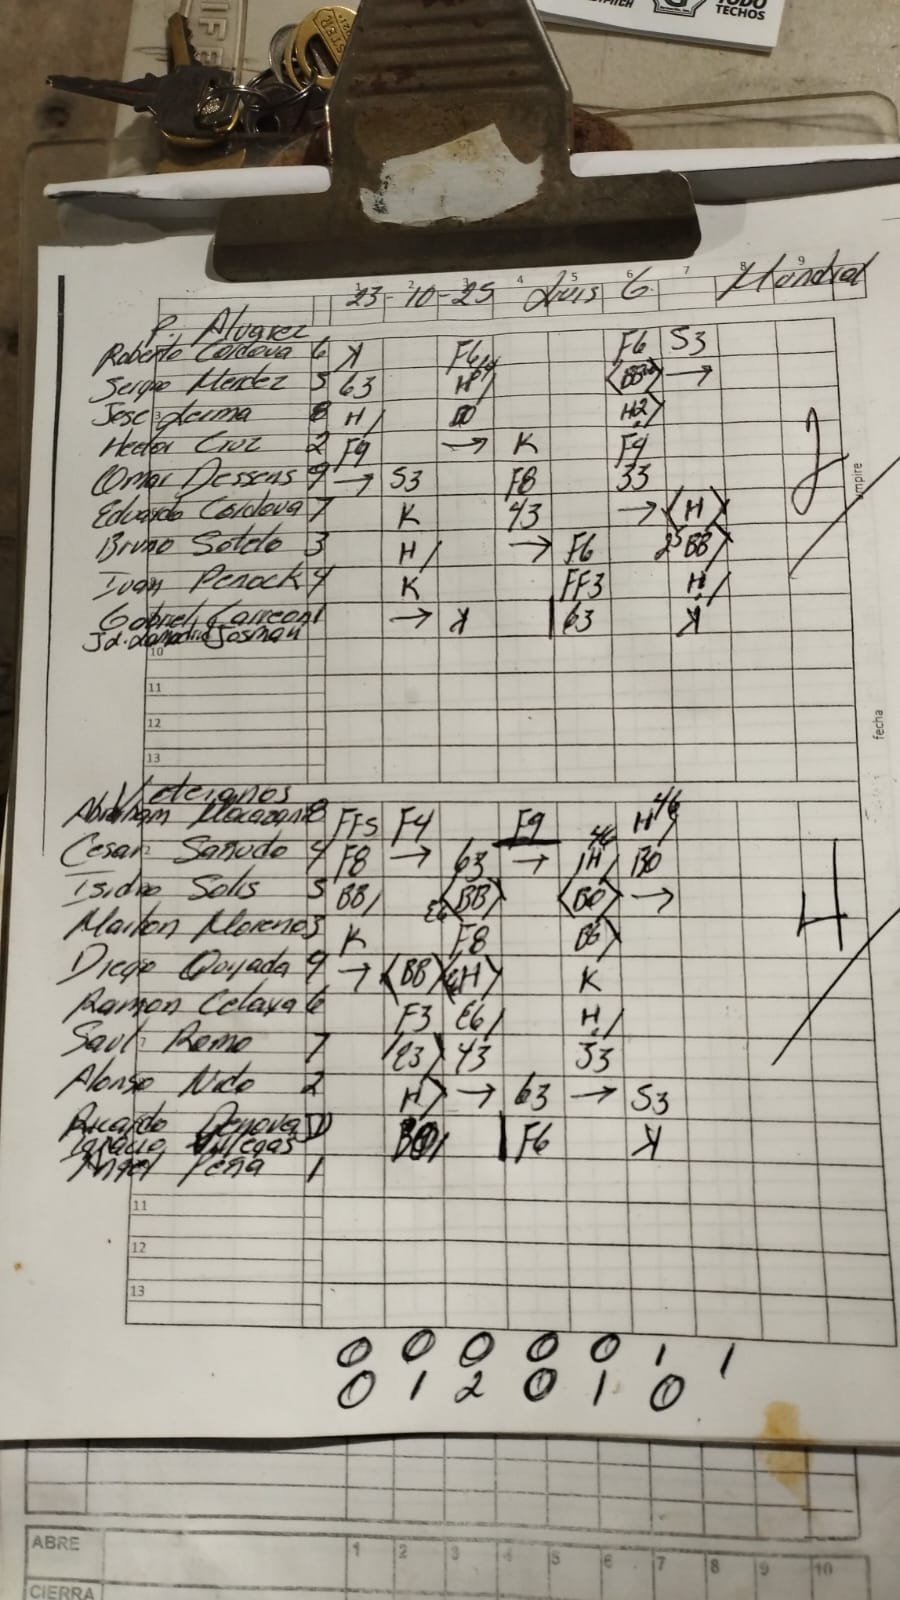 TODO
TECHOS
1 2 3 4 5 6 7 8 9
23-10-25 Luis G. Mundial
P. Alvarez
Roberto Cordova 6 K F6 F6 53
Sergio Mendez 5 63 H BB →
Jose Lerma 8 H H2
Hector Cruz 2 F9 → K F4
Omar Dessens 9 → 53 F8 33
Eduardo Cordova 7 K 43 → H
Bruno Sotelo 3 H → F6 BB
Ivan Penock 4 K FF3 H
Gabriel Carreon 1 → K 63 K
Josman
10
11
12
13
2
umpire
fecha
Veteranos
Abraham 8 FF5 F4 F9 H 46
Cesar Sañudo 4 F8 → 63 → 46 1H BO
Isidro Solis 5 BB E6 BB BO →
Marlon Moreno 3 K F8 BB
Diego Quijada 9 → BB H K
Ramon Celaya 6 F3 E6 H
Saul Romo 7 23 43 33
Alonso Nido 2 H → 63 → 53
Ricardo Denova D F6 K
Ignacio Villegas
Angel Peña 1
11
12
13
4
0 0 0 0 0 1 1
0 1 2 0 1 0
ABRE 1 2 3 4 5 6 7 8 9 10
CIERRA